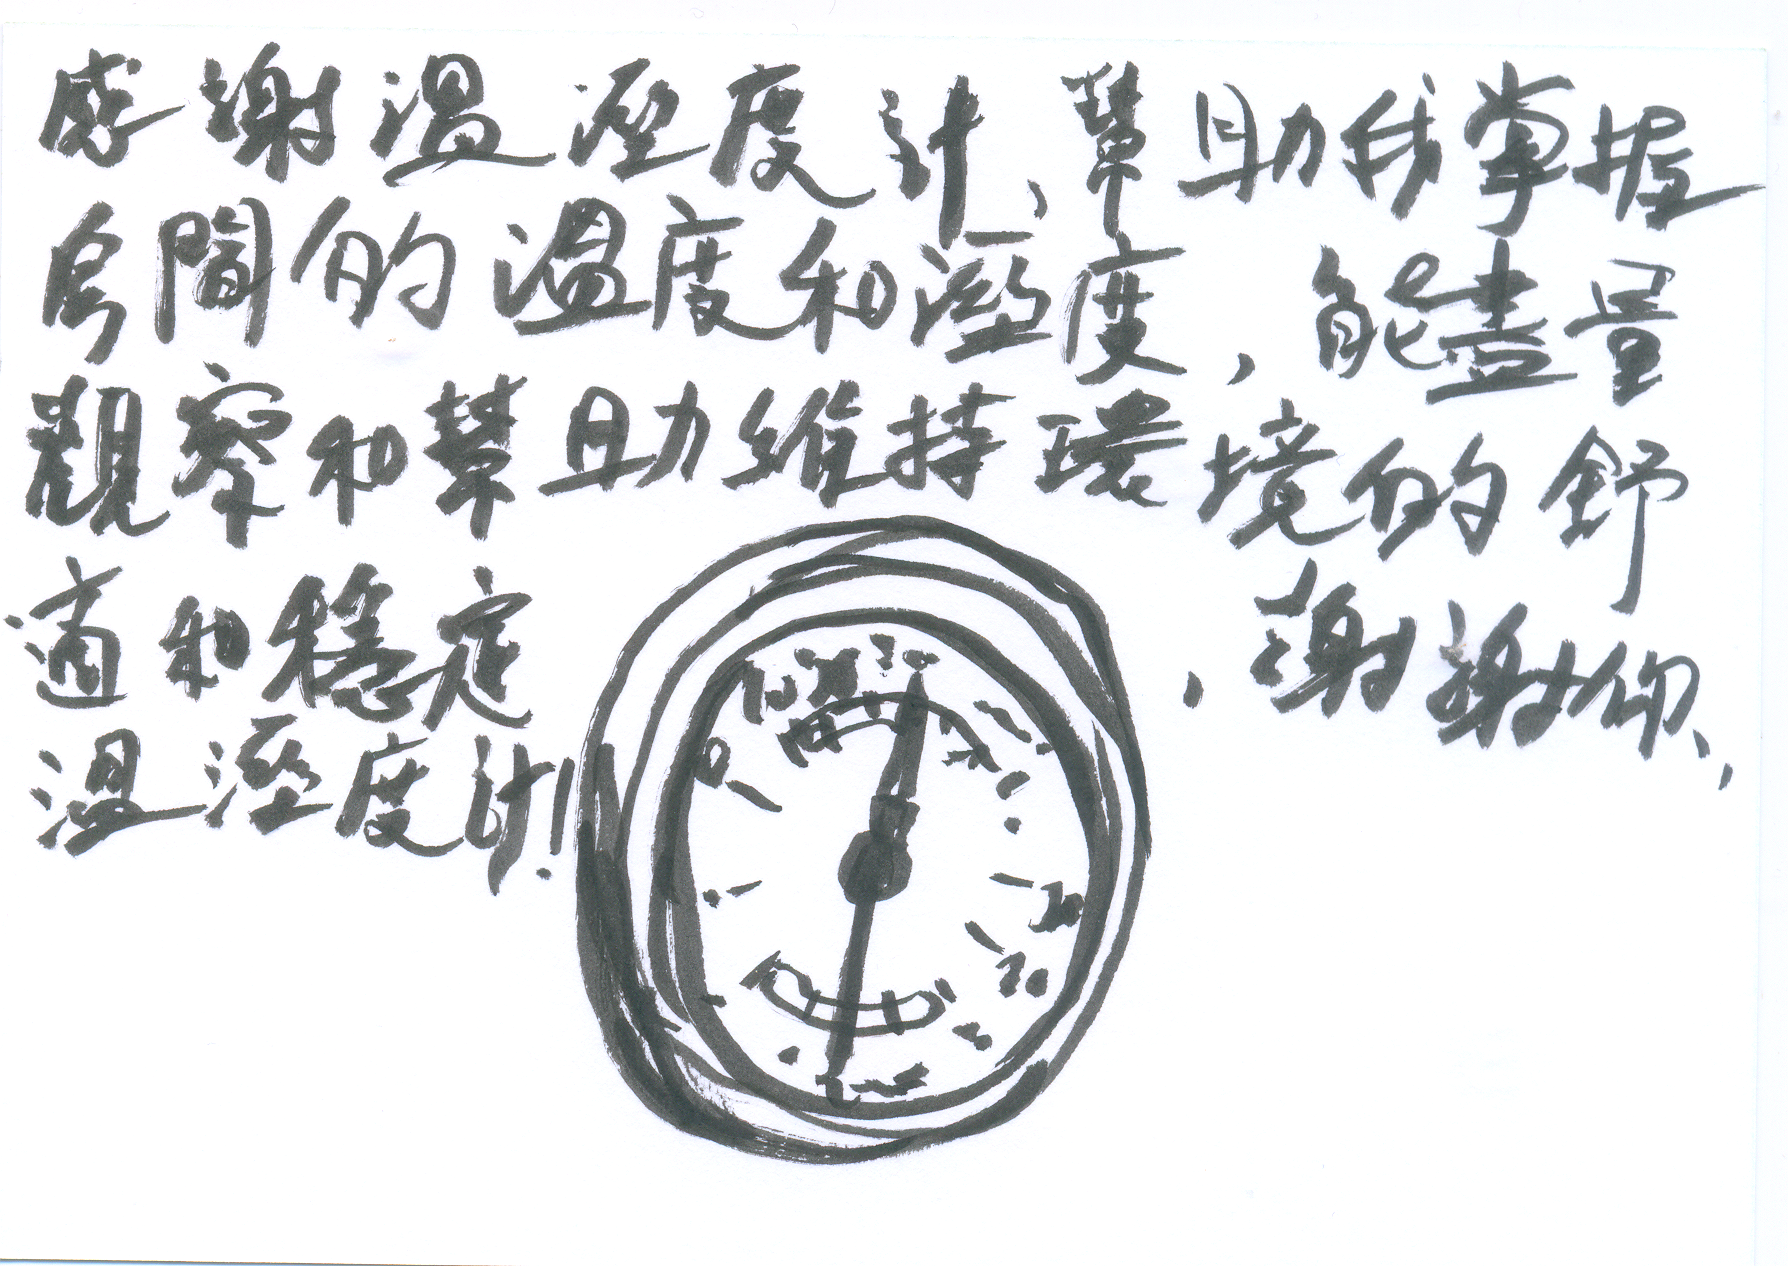 感謝溫溼度計、幫助我掌握
房間的溫度和溼度，能盡量
觀察和幫助維持環境的舒
適和穩定，謝謝你、
溫溼度計！
0
30
20